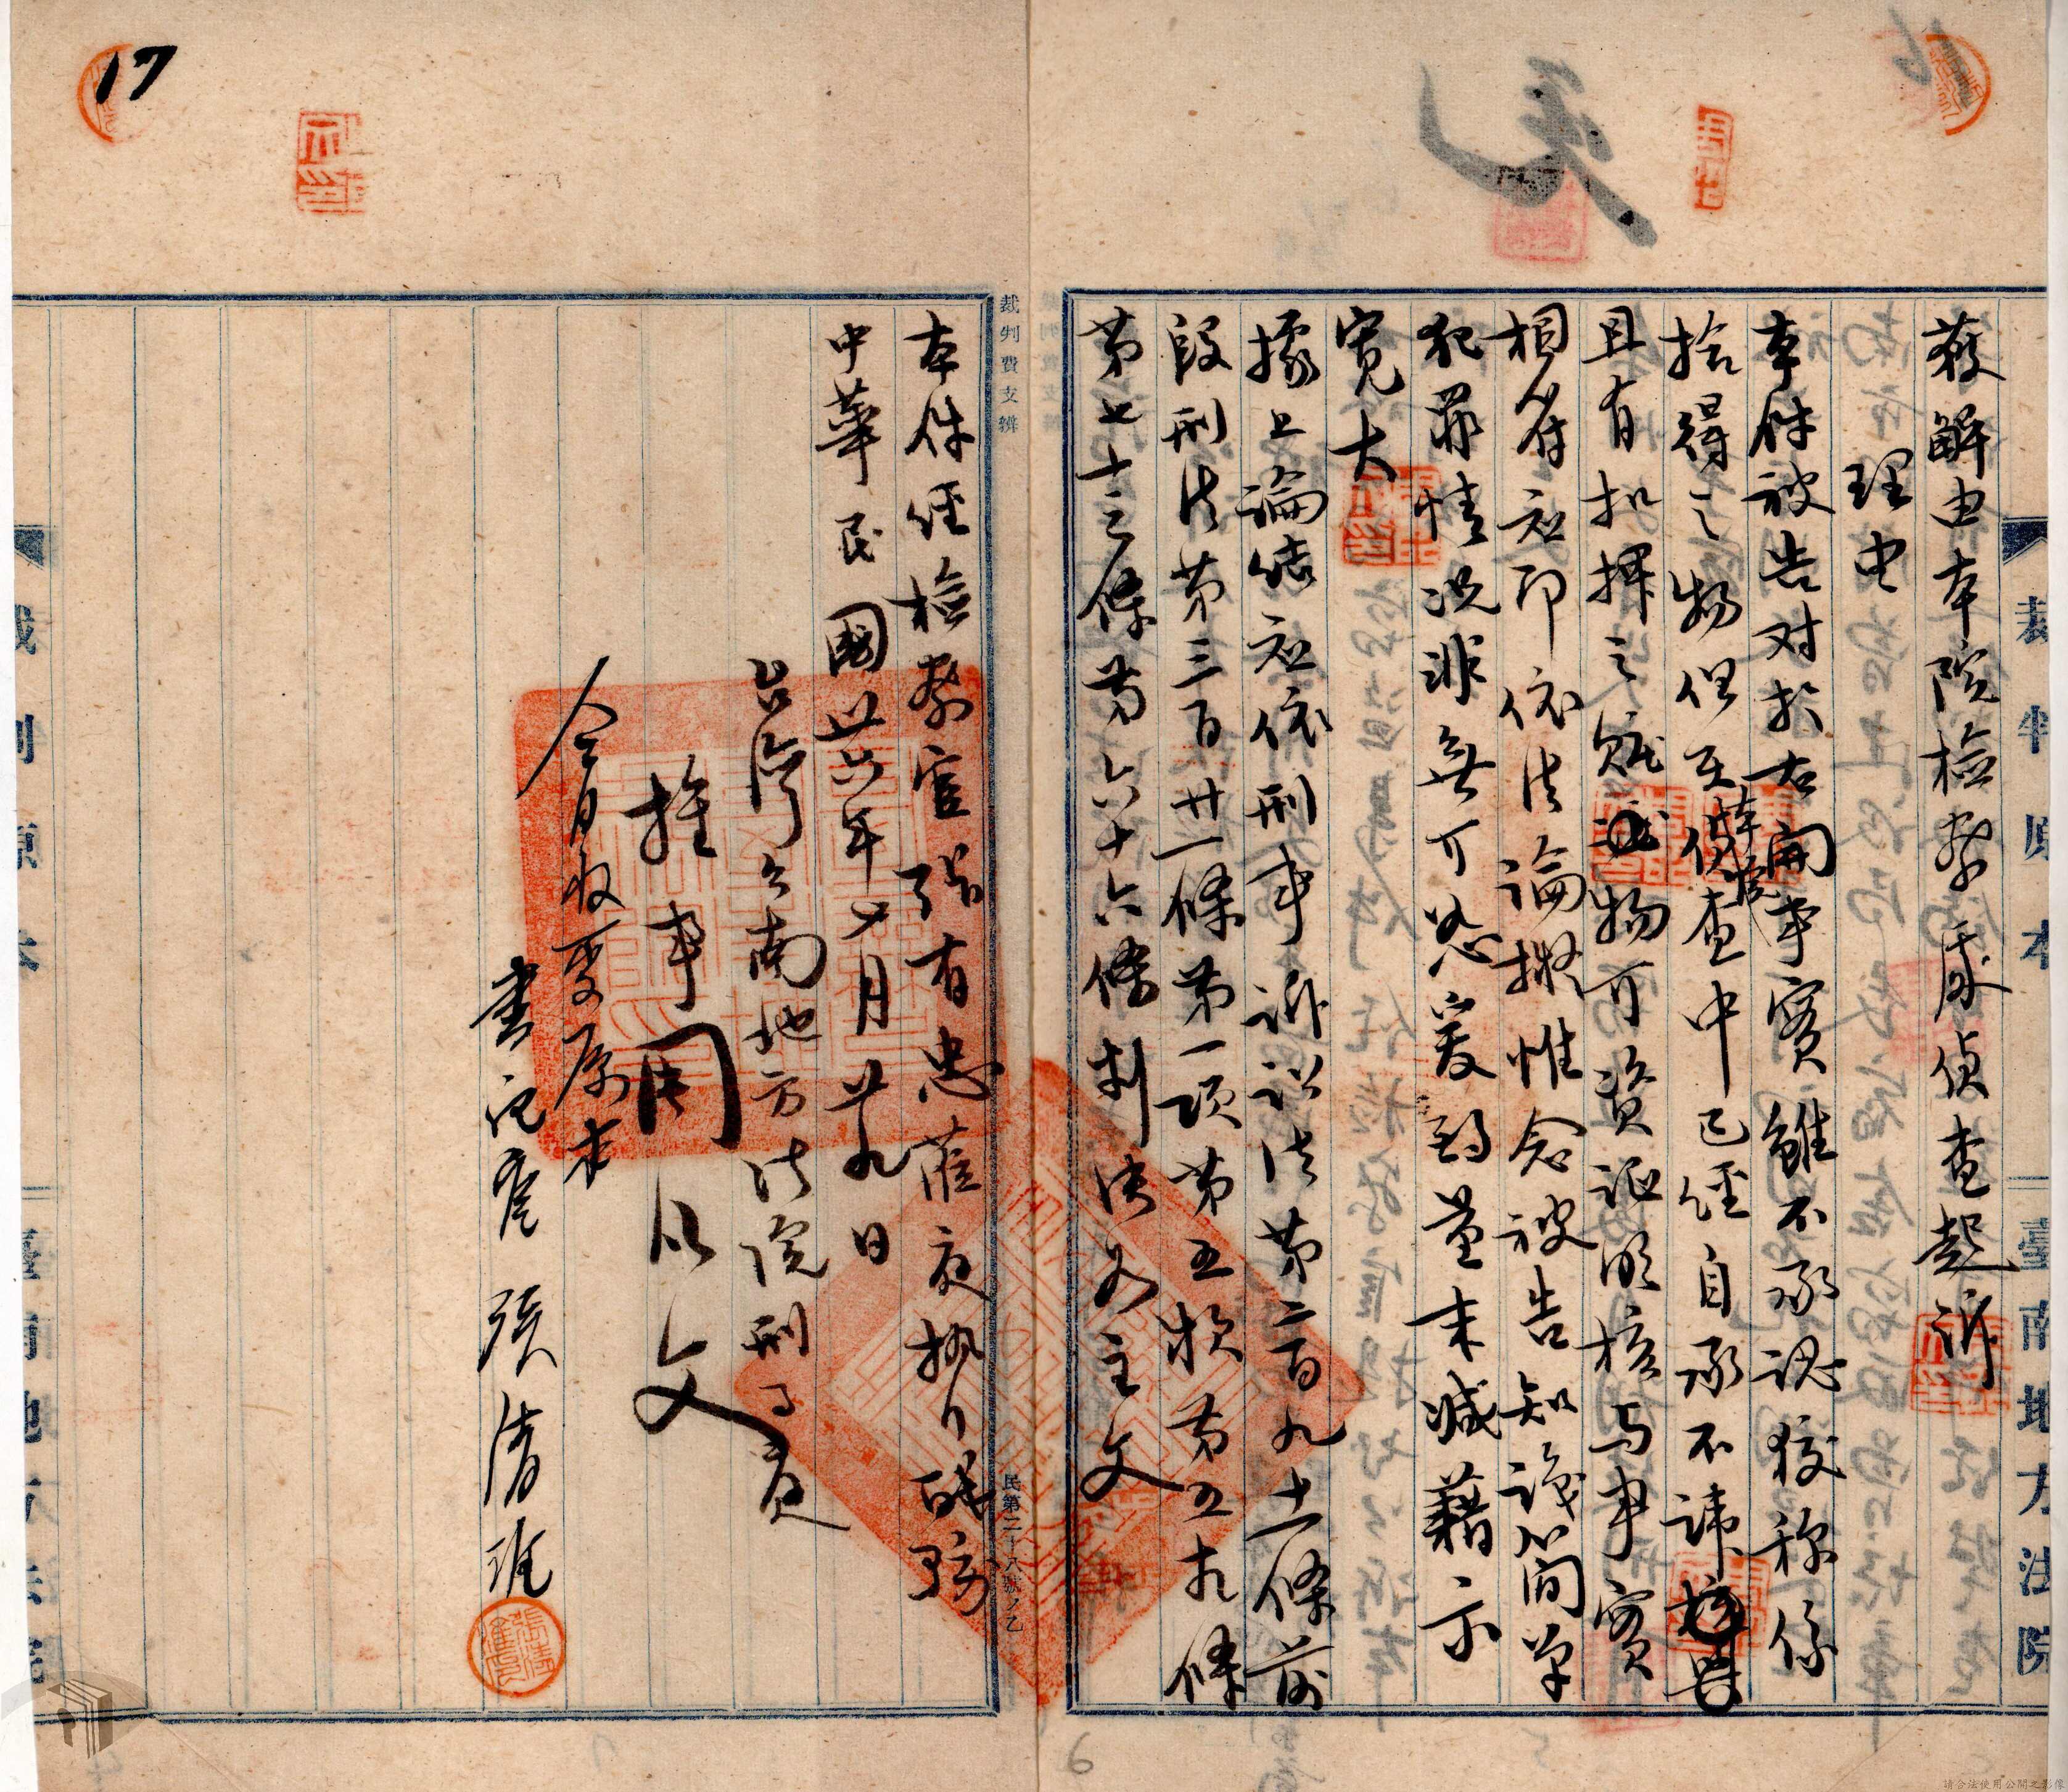 獲解由本院檢察處偵查起訴
理由
本件被告对於右開事實雖不承認狡稱係
拾得之物但在偵查中已經自承不諱
且有扣押之贓物可資証明核与事實
相符社即依法論擬惟念被告知識簡单
犯罪情況非無可恕爰酌量末減藉示
寬大
據上論結应依刑事訴訟法第二百九十一條前
段刑法第三百廿一條第一項第五款第五十九條
第七十三條第六十六條判決如主文
裁判費支辨
本件經檢察官張有忠蒞庭執行職務
中華民國卅六年 月廿九日
台灣台南地方法院刑事庭
推事 周以文
今日收受原本
書記官 張清班
民第二十八號ノ乙
裁判原本
臺南地方法院
17
6
請合法使用公開之影像